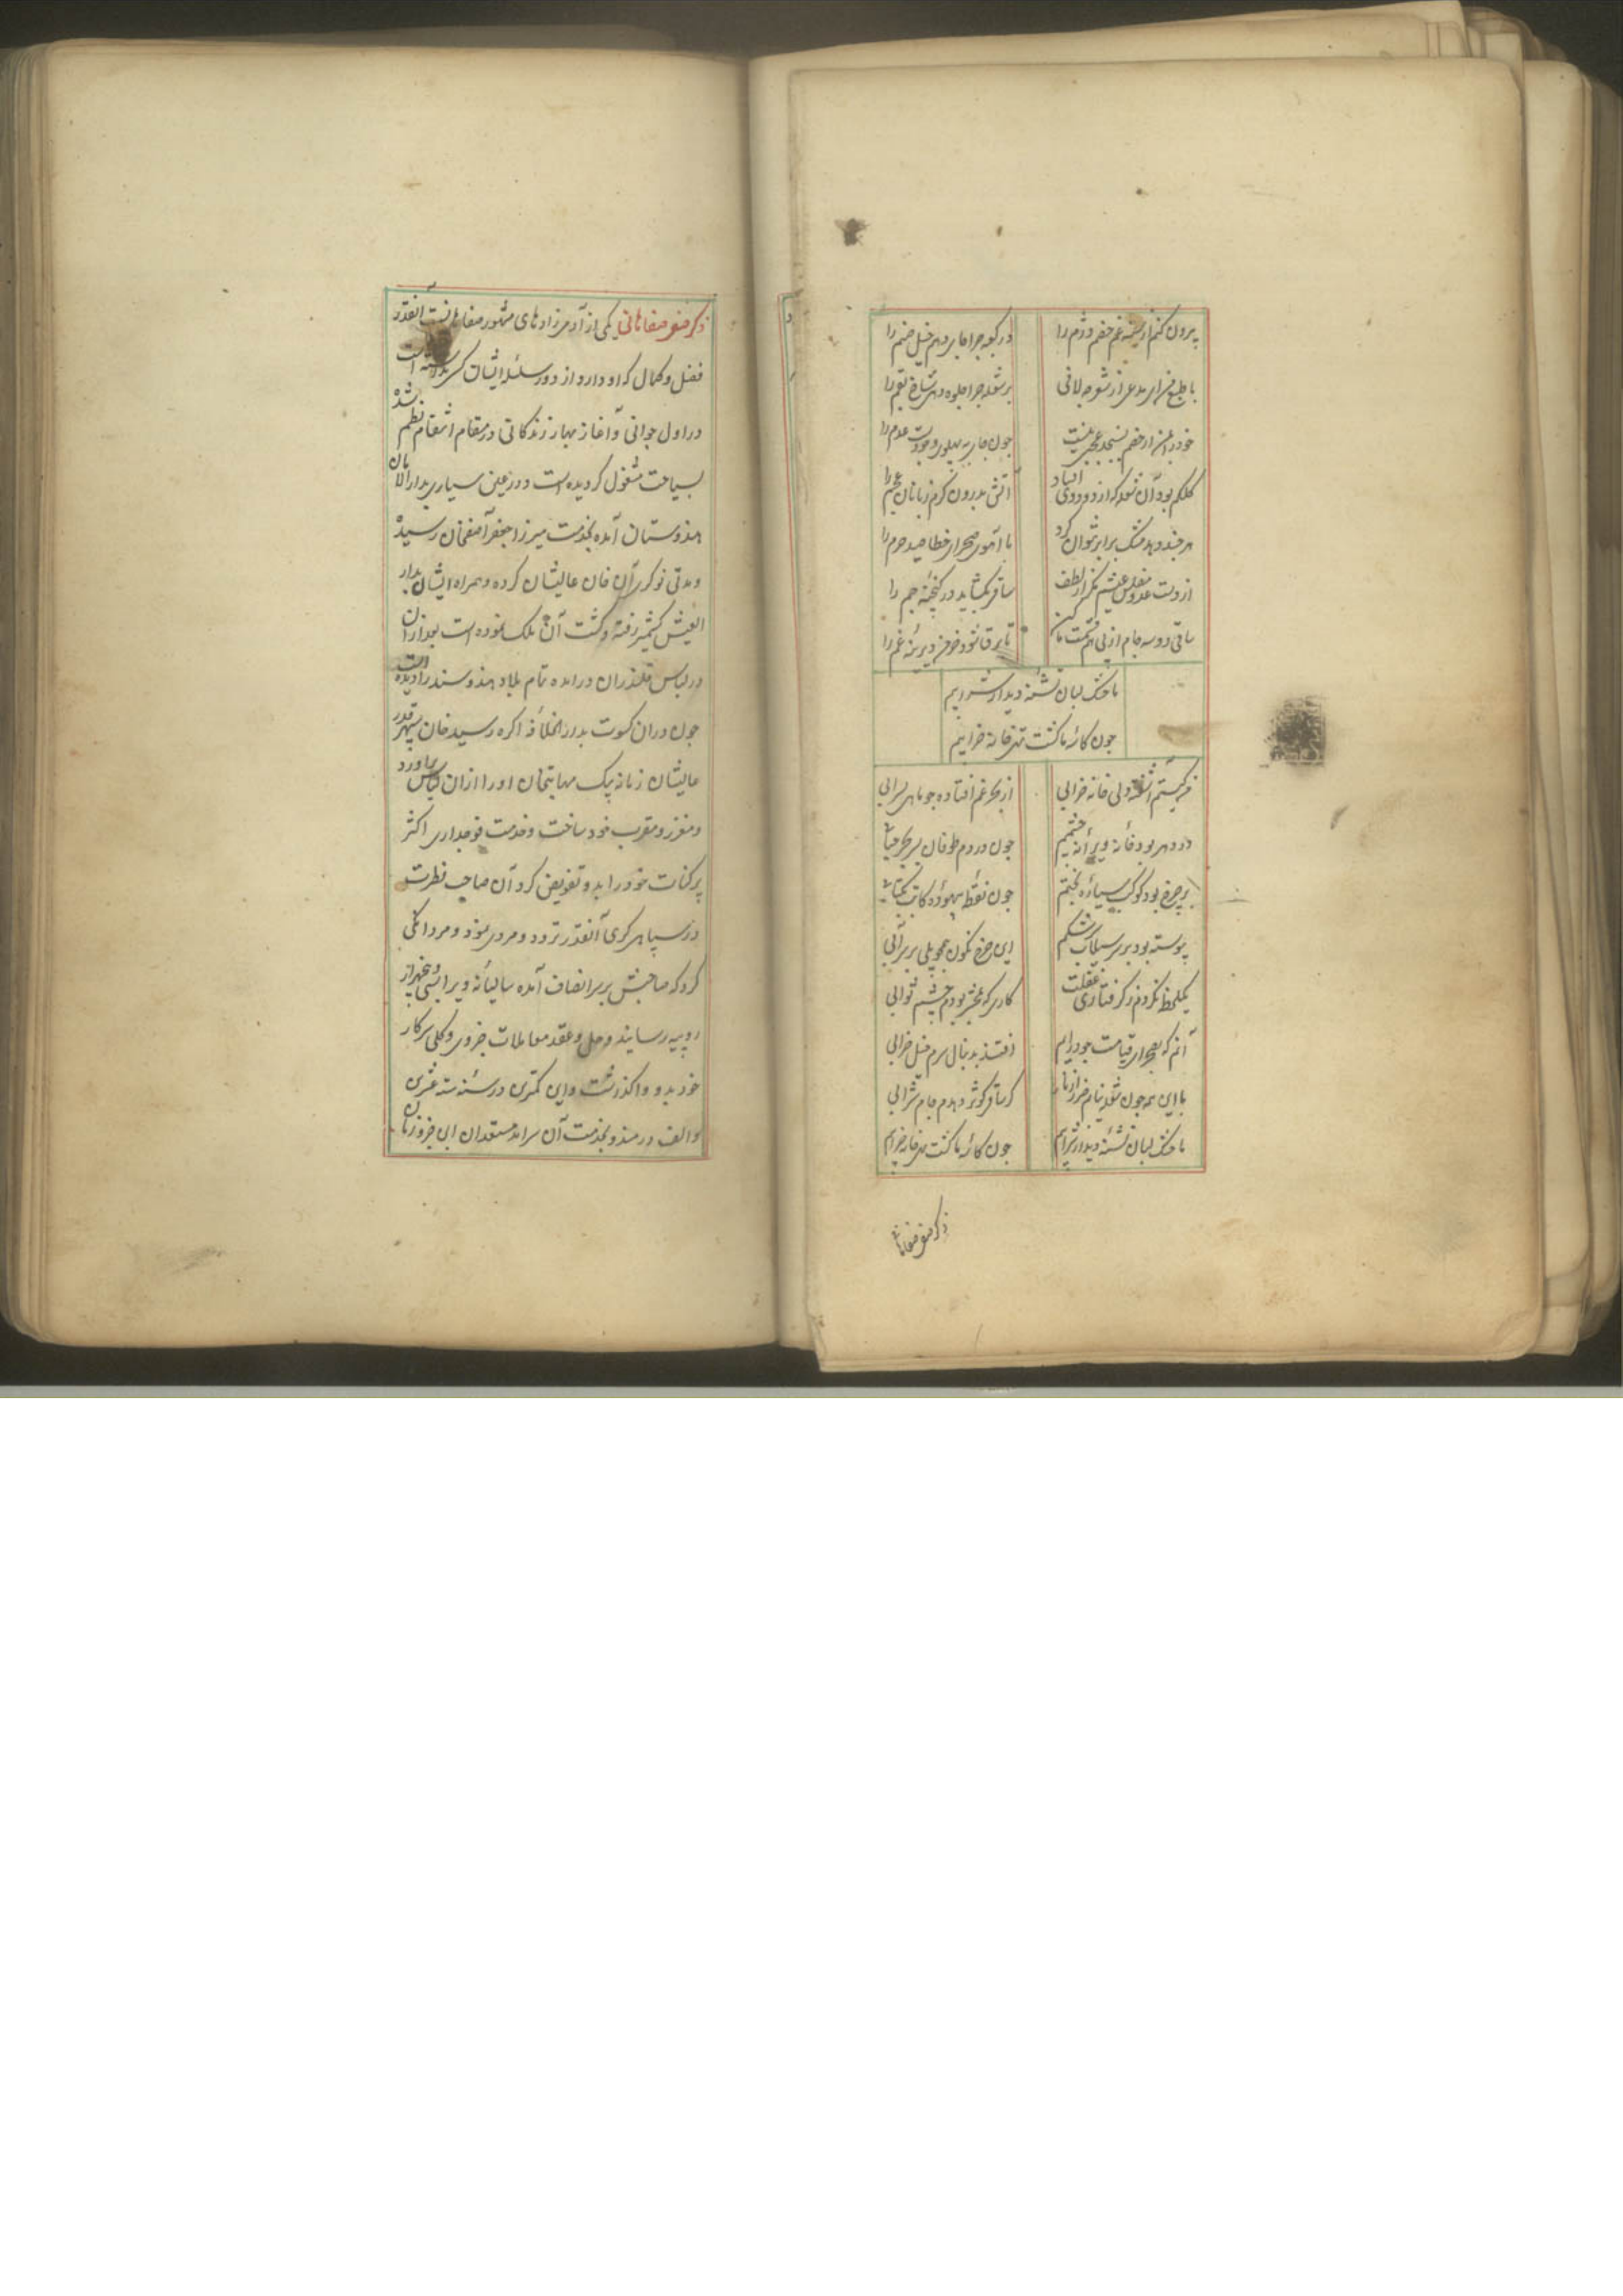 بیرون کنم از سینه غم خصم دژم را
در کعبه چرا جای دهم خیل صنم را
با طبع من ای مدعی از شعر چه لافی
بر شعله چرا جلوه دهی شاخ بقم را
خود را به من از خصم بسنجد عجبی نیست
چون جای به پهلوی وجودست عدم را
کلکم بود آن شعله که از دود وی افتاد
آتش بدرون گرم زبانان عجم را
هر چند دهد مشک برابر نتوان کرد
با آهوی صحرای خطا صید حرم را
از دست عدو مفلس عیشیم مگر از لطف
ساقی بگشاید در گنجینه جم را
ساقی دو سه جام از پی هم قسمت ما کن
تا برق شود خرمن دیرینه غم را
ما خشک لبان تشنه دیدار شرابیم
چون کاسه ما گشت تهی خانه خرابیم
من کیستم آشفته دلی خانه خرابی
از بحر غم افتاده چو ماهی بسرابی
در دهر بود خانه ویرانه چشمم
چون در دم طوفان بسر بحر حبابی
بر چرخ بود کوکب سیاره بختم
چون نقطه بیهوده کاتب بکتابی
پیوسته بود بر سر سیلاب سرشکم
این چرخ نگون همچو پلی بر سر آبی
یکلحظه نکردم ز گرفتاری غفلت
کاری که بمحشر بودم چشم ثوابی
آنم که بصحرای قیامت چو در آیم
افتند بدنبال سرم خیل خرابی
با این همه چون شعله نیابم ضرر از نار
گر ساقی کوثر دهدم جام شرابی
ما خشک لبان تشنه دیدار شرابیم
چون کاسه ما گشت تهی خانه خرابیم
ذکر صفی صفاهانی
ذکر صفی صفاهانی یکی از آدمی زادهای مشهور صفاهانست آنقدر
فضل و کمال که او دارد از دور سلسله ایشان کسی ندیده است
در اول جوانی و آغاز بهار زندگانی در مقام انتقام نظم شده
بسیاحت مشغول گردیده است و در عین سیاری بدار الامان
هندوستان آمده بخدمت میرزا جعفر آصفخان رسیده
و مدتی نوکری آن خان عالیشان کرده و همراه ایشان بدار
العیش کشمیر رفته و گشت آن ملک نموده است بعد از آن
در لباس قلندران درآمده تمام بلاد هندوستان را دیده است
چون در آن کسوت بدار الخلافه اکره رسید خان سپهر قدر
عالیشان زمانه بیک مهابتخان او را از آن لباس برآورد
و معزز و مقرب خود ساخت و خدمت فوجداری اکثر
پرکنات خود را بدو تفویض کرد آن صاحب فطرت
در سپاهی کری آنقدر تردد و مردی نمود و مردانگی
کرد که صاحبش بر سر انصاف آمده سالیانه ویرا بسی و پنج هزار
روپیه رسانید و حل و عقد معاملات جزوی و کلی سرکار
خود بدو واگذاشت و این کمترین در سنه ستة عشرین
و الف در مندو بخدمت آن سرآمد مستعدان این جزو زمان